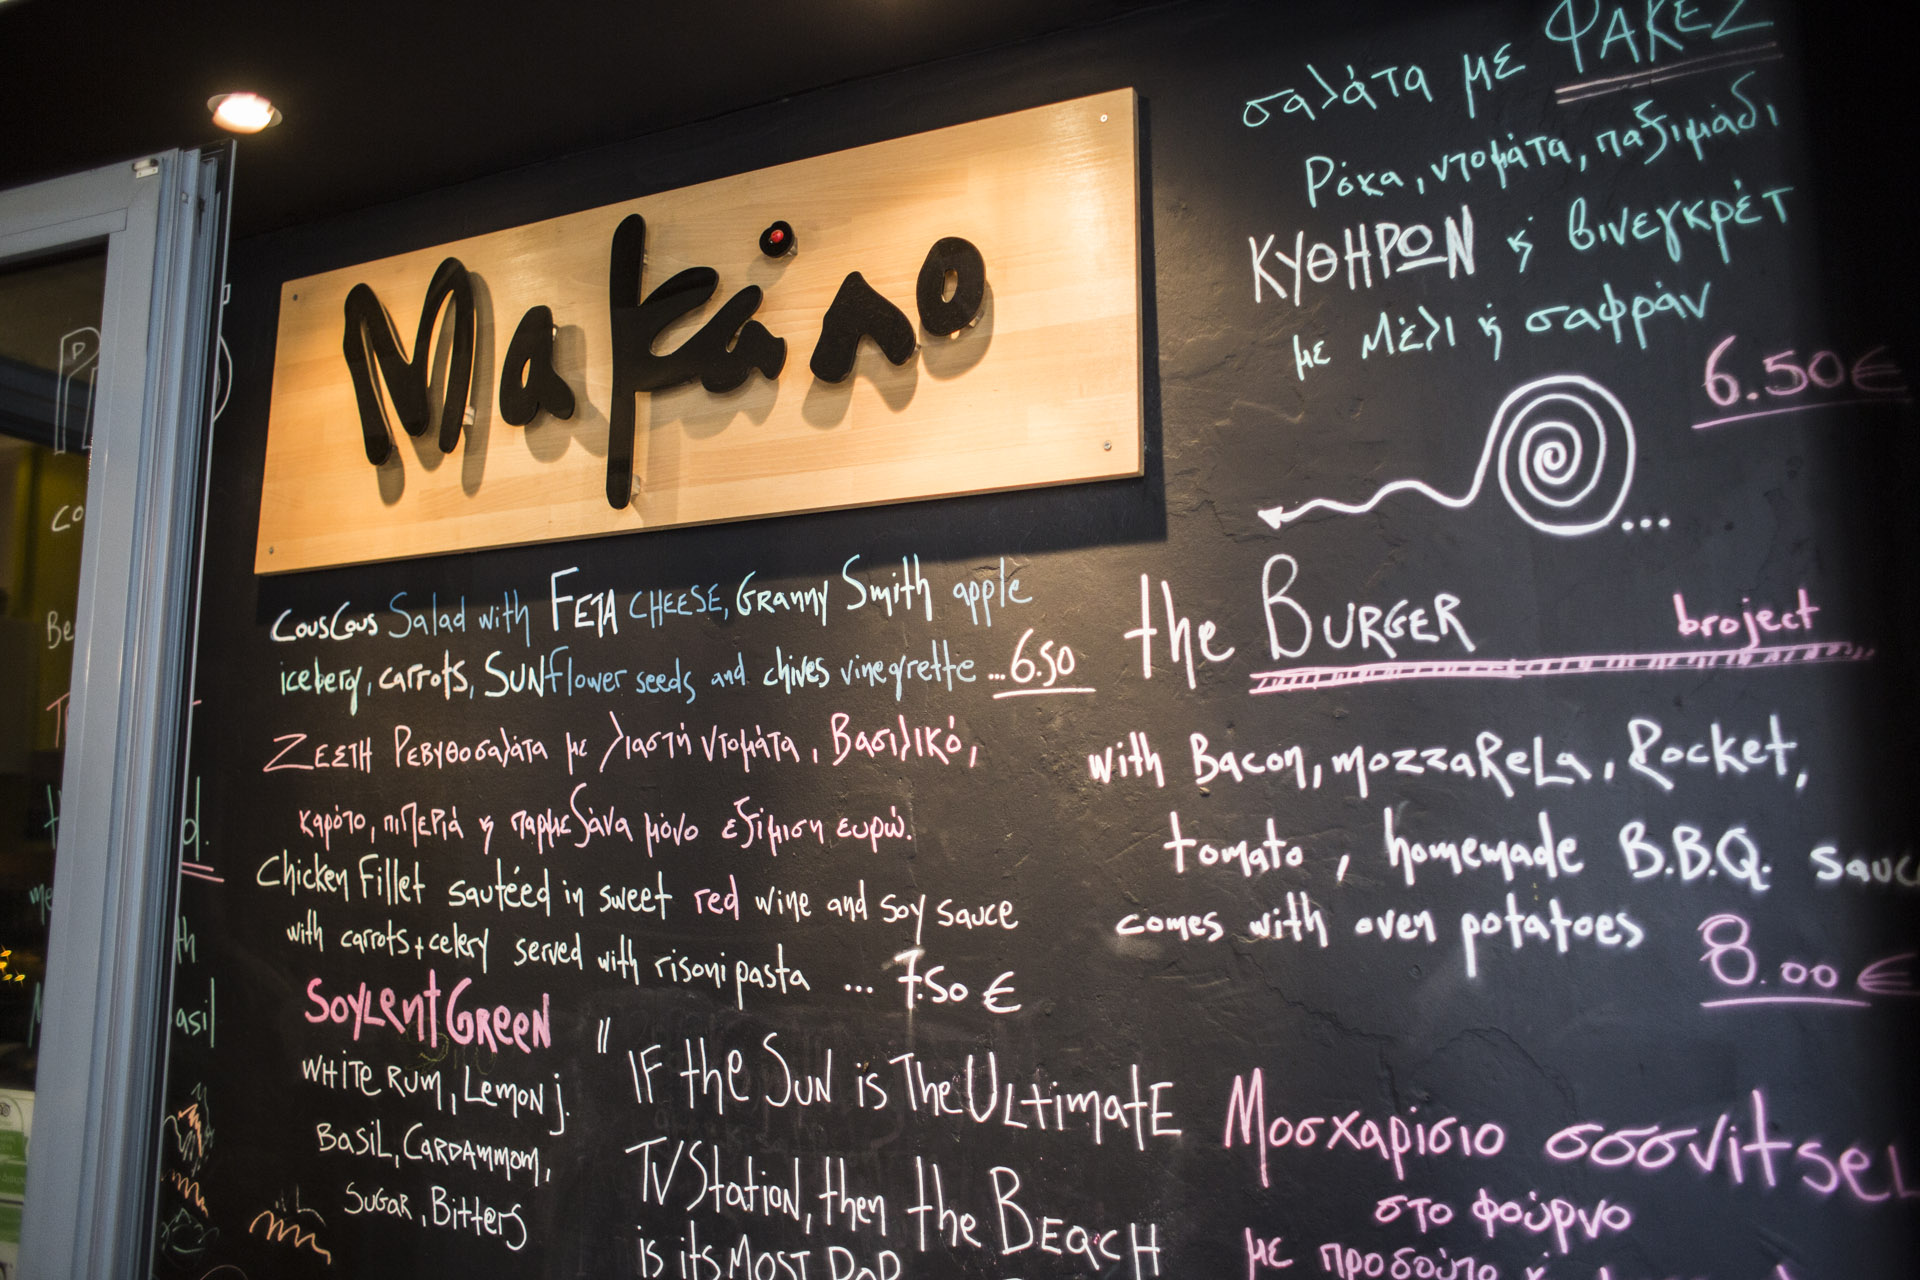 Μακάλο
CousCous Salad with FETA CHEESE, GRanny Smith apple
iceberg, carrots, SUNflower seeds and chives vinegrette ...6.50
ΖΕΣΤΗ Ρεβυθοσαλάτα με λιαστή ντομάτα, Βασιλικό,
καρότο, πιπεριά κ παρμεζάνα μόνο εξίμιση ευρώ.
Chicken Fillet sautéed in sweet red wine and soy sauce
with carrots + celery served with risoni pasta ... 7.50 €
SOYLentGReeN
WHITE RUM, LemoN j.
BasiL, CARDAmmom,
SUGAR, Bitters
"IF the SUN is The ULtimatE
TV StatioN, then the BEaCH
is its MOST POP
σαλάτα με ΦΑΚΕΣ
Ρόκα, ντομάτα, παξιμάδι
ΚΥΘΗΡΩΝ κ βινεγκρέτ
με Μέλι κ σαφράν
6.50€
...
the BURGER broject
with Bacon, mozzaReLa, Rocket,
tomato, homemade B.B.Q. sauc
comes with oven potatoes
8.00 €
Μοσχαρίσιο σοσνitseL
στο φούρνο
με προσούτο κ